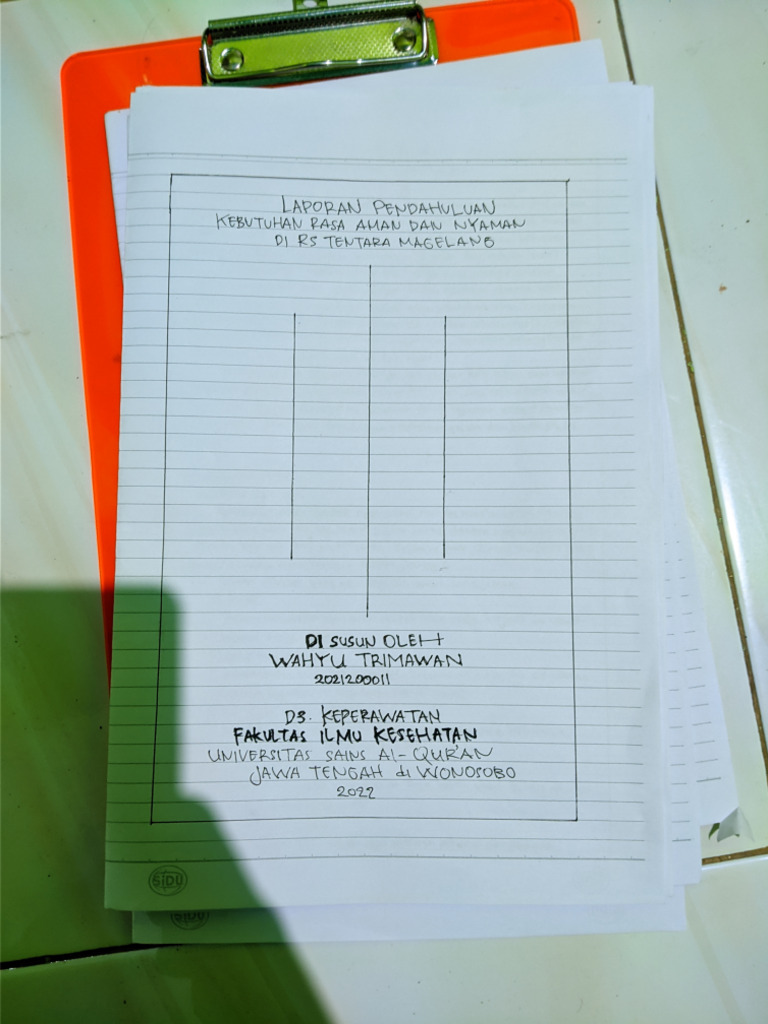 LAPORAN PENDAHULUAN
KEBUTUHAN RASA AMAN DAN NYAMAN
DI RS TENTARA MAGELANG
DI SUSUN OLEH
WAHYU TRIMAWAN
2021200011
D3. KEPERAWATAN
FAKULTAS ILMU KESEHATAN
UNIVERSITAS SAINS Al-QUR'AN
JAWA TENGAH di WONOSOBO
2022
SIDU
SIDU